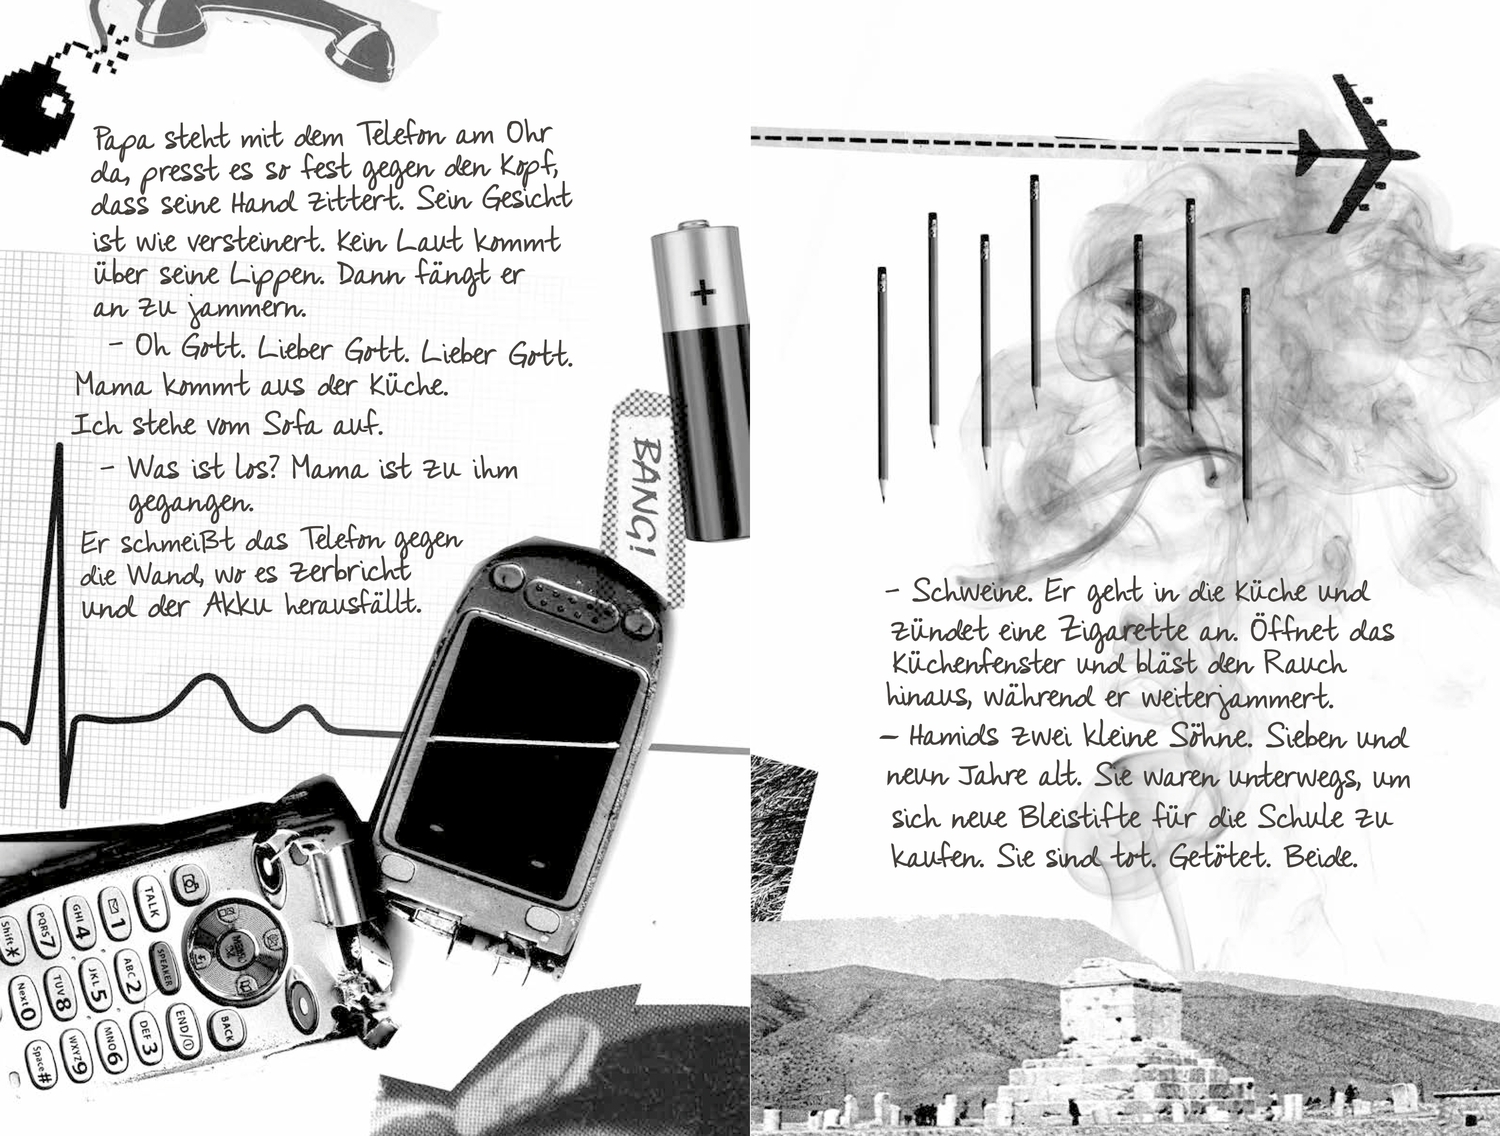 Papa steht mit dem Telefon am Ohr
da, presst es so fest gegen den Kopf,
dass seine Hand zittert. Sein Gesicht
ist wie versteinert. Kein Laut kommt
über seine Lippen. Dann fängt er
an zu jammern.
– Oh Gott. Lieber Gott. Lieber Gott.
Mama kommt aus der Küche.
Ich stehe vom Sofa auf.
– Was ist los? Mama ist zu ihm
gegangen.
Er schmeißt das Telefon gegen
die Wand, wo es zerbricht
und der Akku herausfällt.
+
BANG!
TALK
1
GHI 4
PQRS 7
Shift *
SPEAKER
ABC 2
JKL 5
TUV 8
Next 0
END/
DEF 3
MNO 6
WXYZ 9
Space #
BACK
MENU
OK
– Schweine. Er geht in die Küche und
zündet eine Zigarette an. Öffnet das
Küchenfenster und bläst den Rauch
hinaus, während er weiterjammert.
– Hamids zwei kleine Söhne. Sieben und
neun Jahre alt. Sie waren unterwegs, um
sich neue Bleistifte für die Schule zu
kaufen. Sie sind tot. Getötet. Beide.